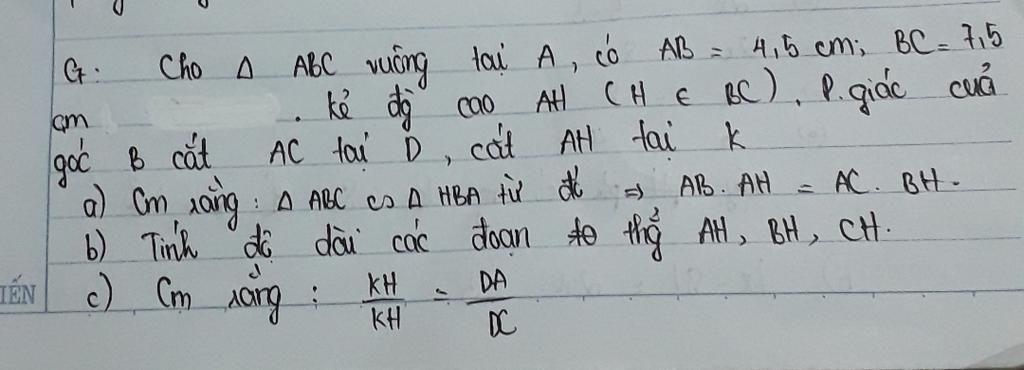 G: Cho Δ ABC vuông tại A, có AB = 4,5 cm; BC = 7,5
cm . kẻ đg̀ cao AH (H ∈ BC). P.giác của
góc B cắt AC tại D, cắt AH tại K
a) Cm rằng: Δ ABC ∽ Δ HBA từ đó ⇒ AB. AH = AC. BH.
b) Tính độ dài các đoạn thg̉ AH, BH, CH.
IẾN c) Cm rằng: KH/KH = DA/DC